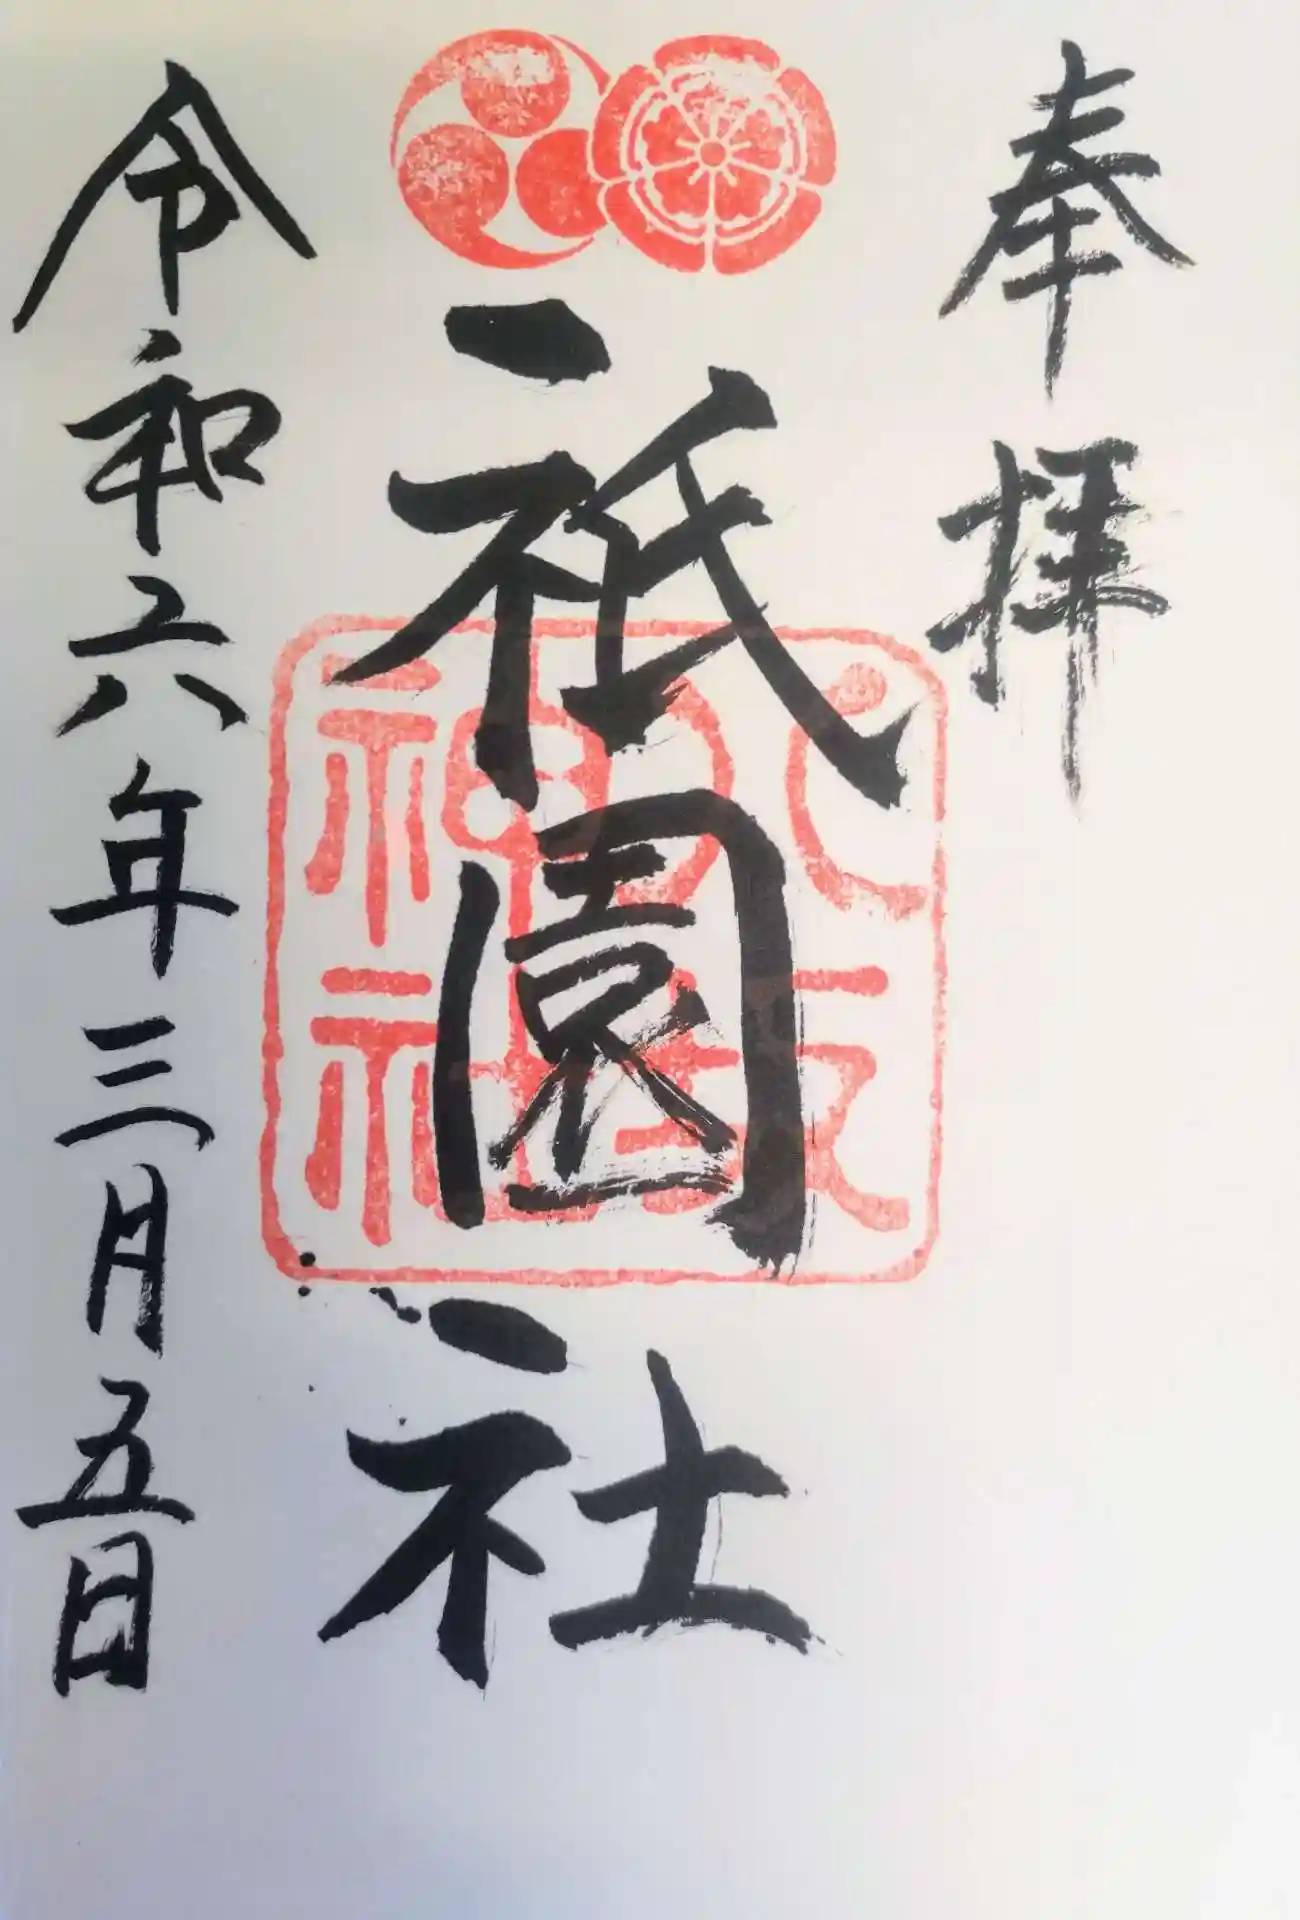 奉拝
祇園社
八坂神社
令和六年三月五日